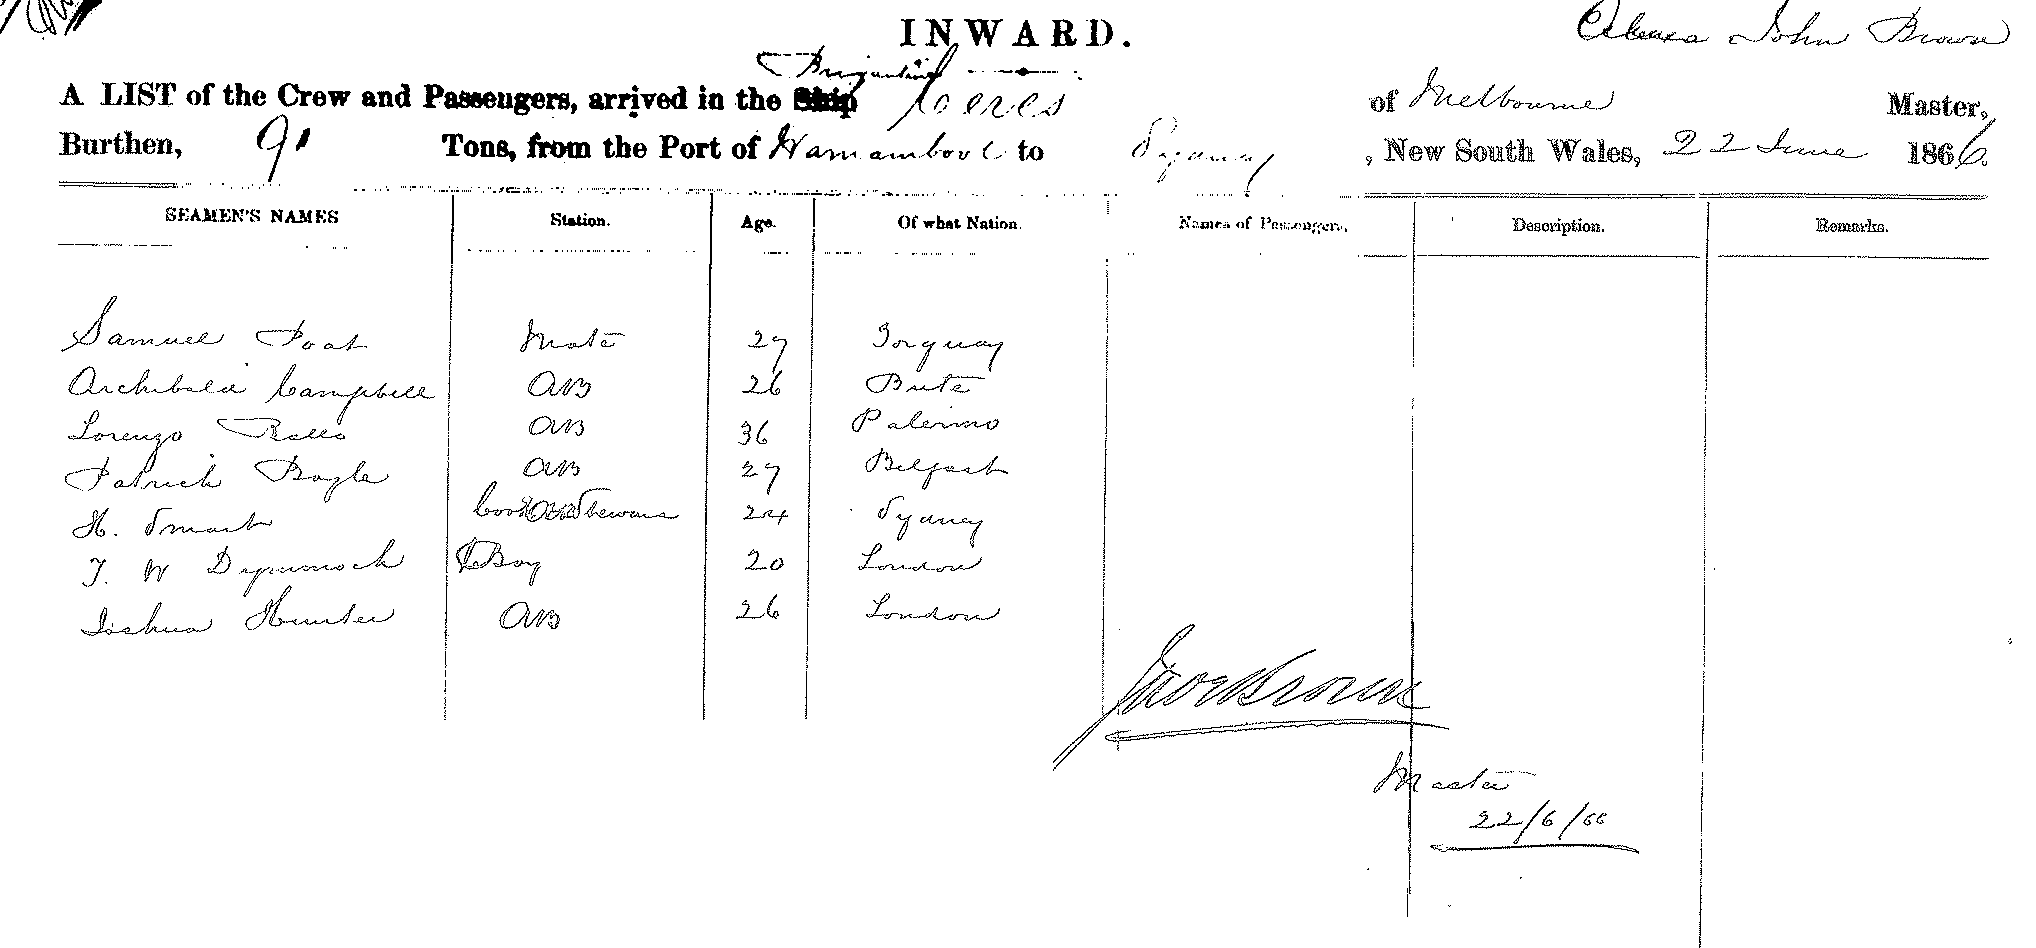 INWARD.
John Brown
A LIST of the Crew and Passengers, arrived in the Ship Brigantine Ceres of Melbourne Master,
Burthen, 91 Tons, from the Port of Warnambool to Sydney, New South Wales, 22 June 1866.
SEAMEN'S NAMES Station. Age. Of what Nation. Names of Passengers. Description. Remarks.
Samuel Poat Mate 27 Torquay
Archibald Campbell AB 26 Bute
Lorenzo AB 36 Palermo
Patrick Bogle AB 27 Belfast
H. Smart Cook Steward 24 Sydney
T. W Boy 20 London
Joshua Hunter AB 26 London
Brown
Master
22/6/66